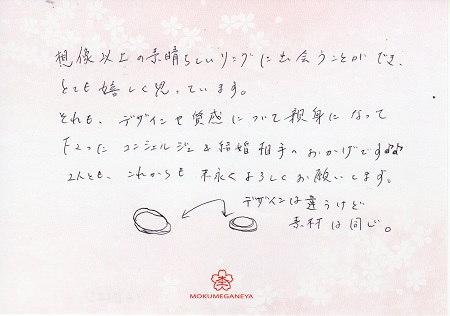 想像以上の素晴らしいリングに出会うことができ、
とても嬉しく思っています。
それも、デザインや質感について親身になって
下さったコンシェルジュ&結婚相手のおかげです♪♪
2人とも、これからも末永くよろしくお願いします。
デザインは違うけど
素材は同じ。
MOKUMEGANEYA